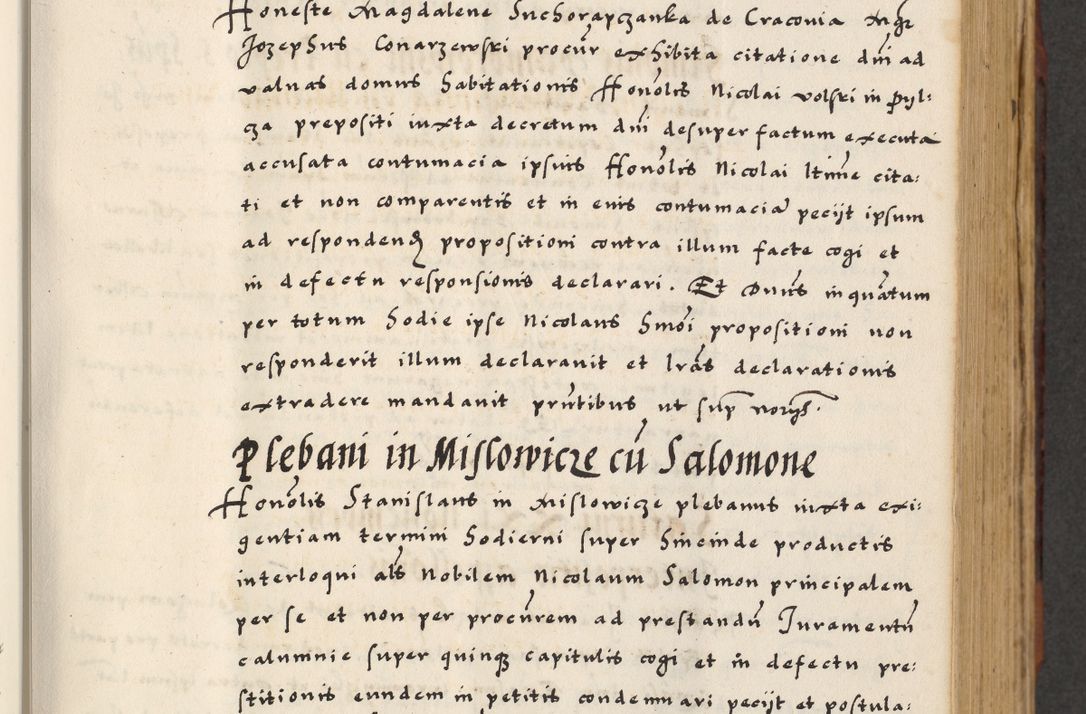 Honeste Magdalene Suchorapczanka de Craconia Mgr
Jozephus Conarzewski procur exhibita citatione dni ad
valuas domus habitationis Honolis Nicolai volski in Pyl:
cza prepositi iuxta decretum dni desuper factum executa
accusata contumacia ipsius Honolis Nicolai ltime cita:
ti et non comparentis et in eius contumacia peciit ipsum
ad respondend propositioni contra illum facte cogi et
in defectu responsionis declarari. Et Dnus inquantum
per totum hodie ipse Nicolaus hmoi propositioni non
responderit illum declarauit et lras declarationis
extradere mandauit prntibus ut sup
Plebani in Mislowicze cu Salomone
Honolis Stanislaus in Mislowicze plebanus iuxta exi:
gentiam termini hodierni super hincinde productis
interloqui als Nobilem Nicolaum Salomon principalem
per se et non per procurem ad prestandu Iuramentu
calumnie super quinq capitulis cogi et in defectu pre:
stitionis eundem in petitis condemnari peciit et postula: